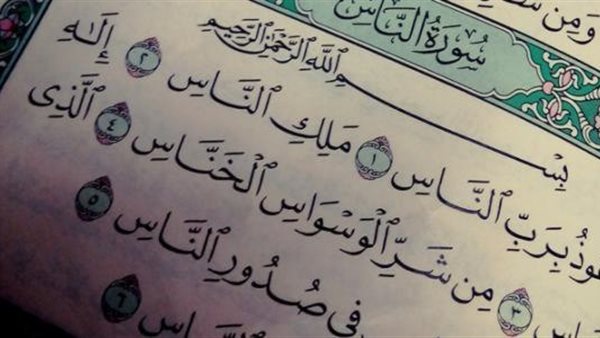 وَمِن
سُورَةُ ٱلنَّاسِ
بِسْمِ ٱللَّهِ ٱلرَّحْمَٰنِ ٱلرَّحِيمِ
عُوذُ بِرَبِّ ٱلنَّاسِ ١ مَلِكِ ٱلنَّاسِ ٢ إِلَٰهِ
٣ مِن شَرِّ ٱلْوَسْوَاسِ ٱلْخَنَّاسِ ٤ ٱلَّذِى
فِى صُدُورِ ٱلنَّاسِ ٥
٦